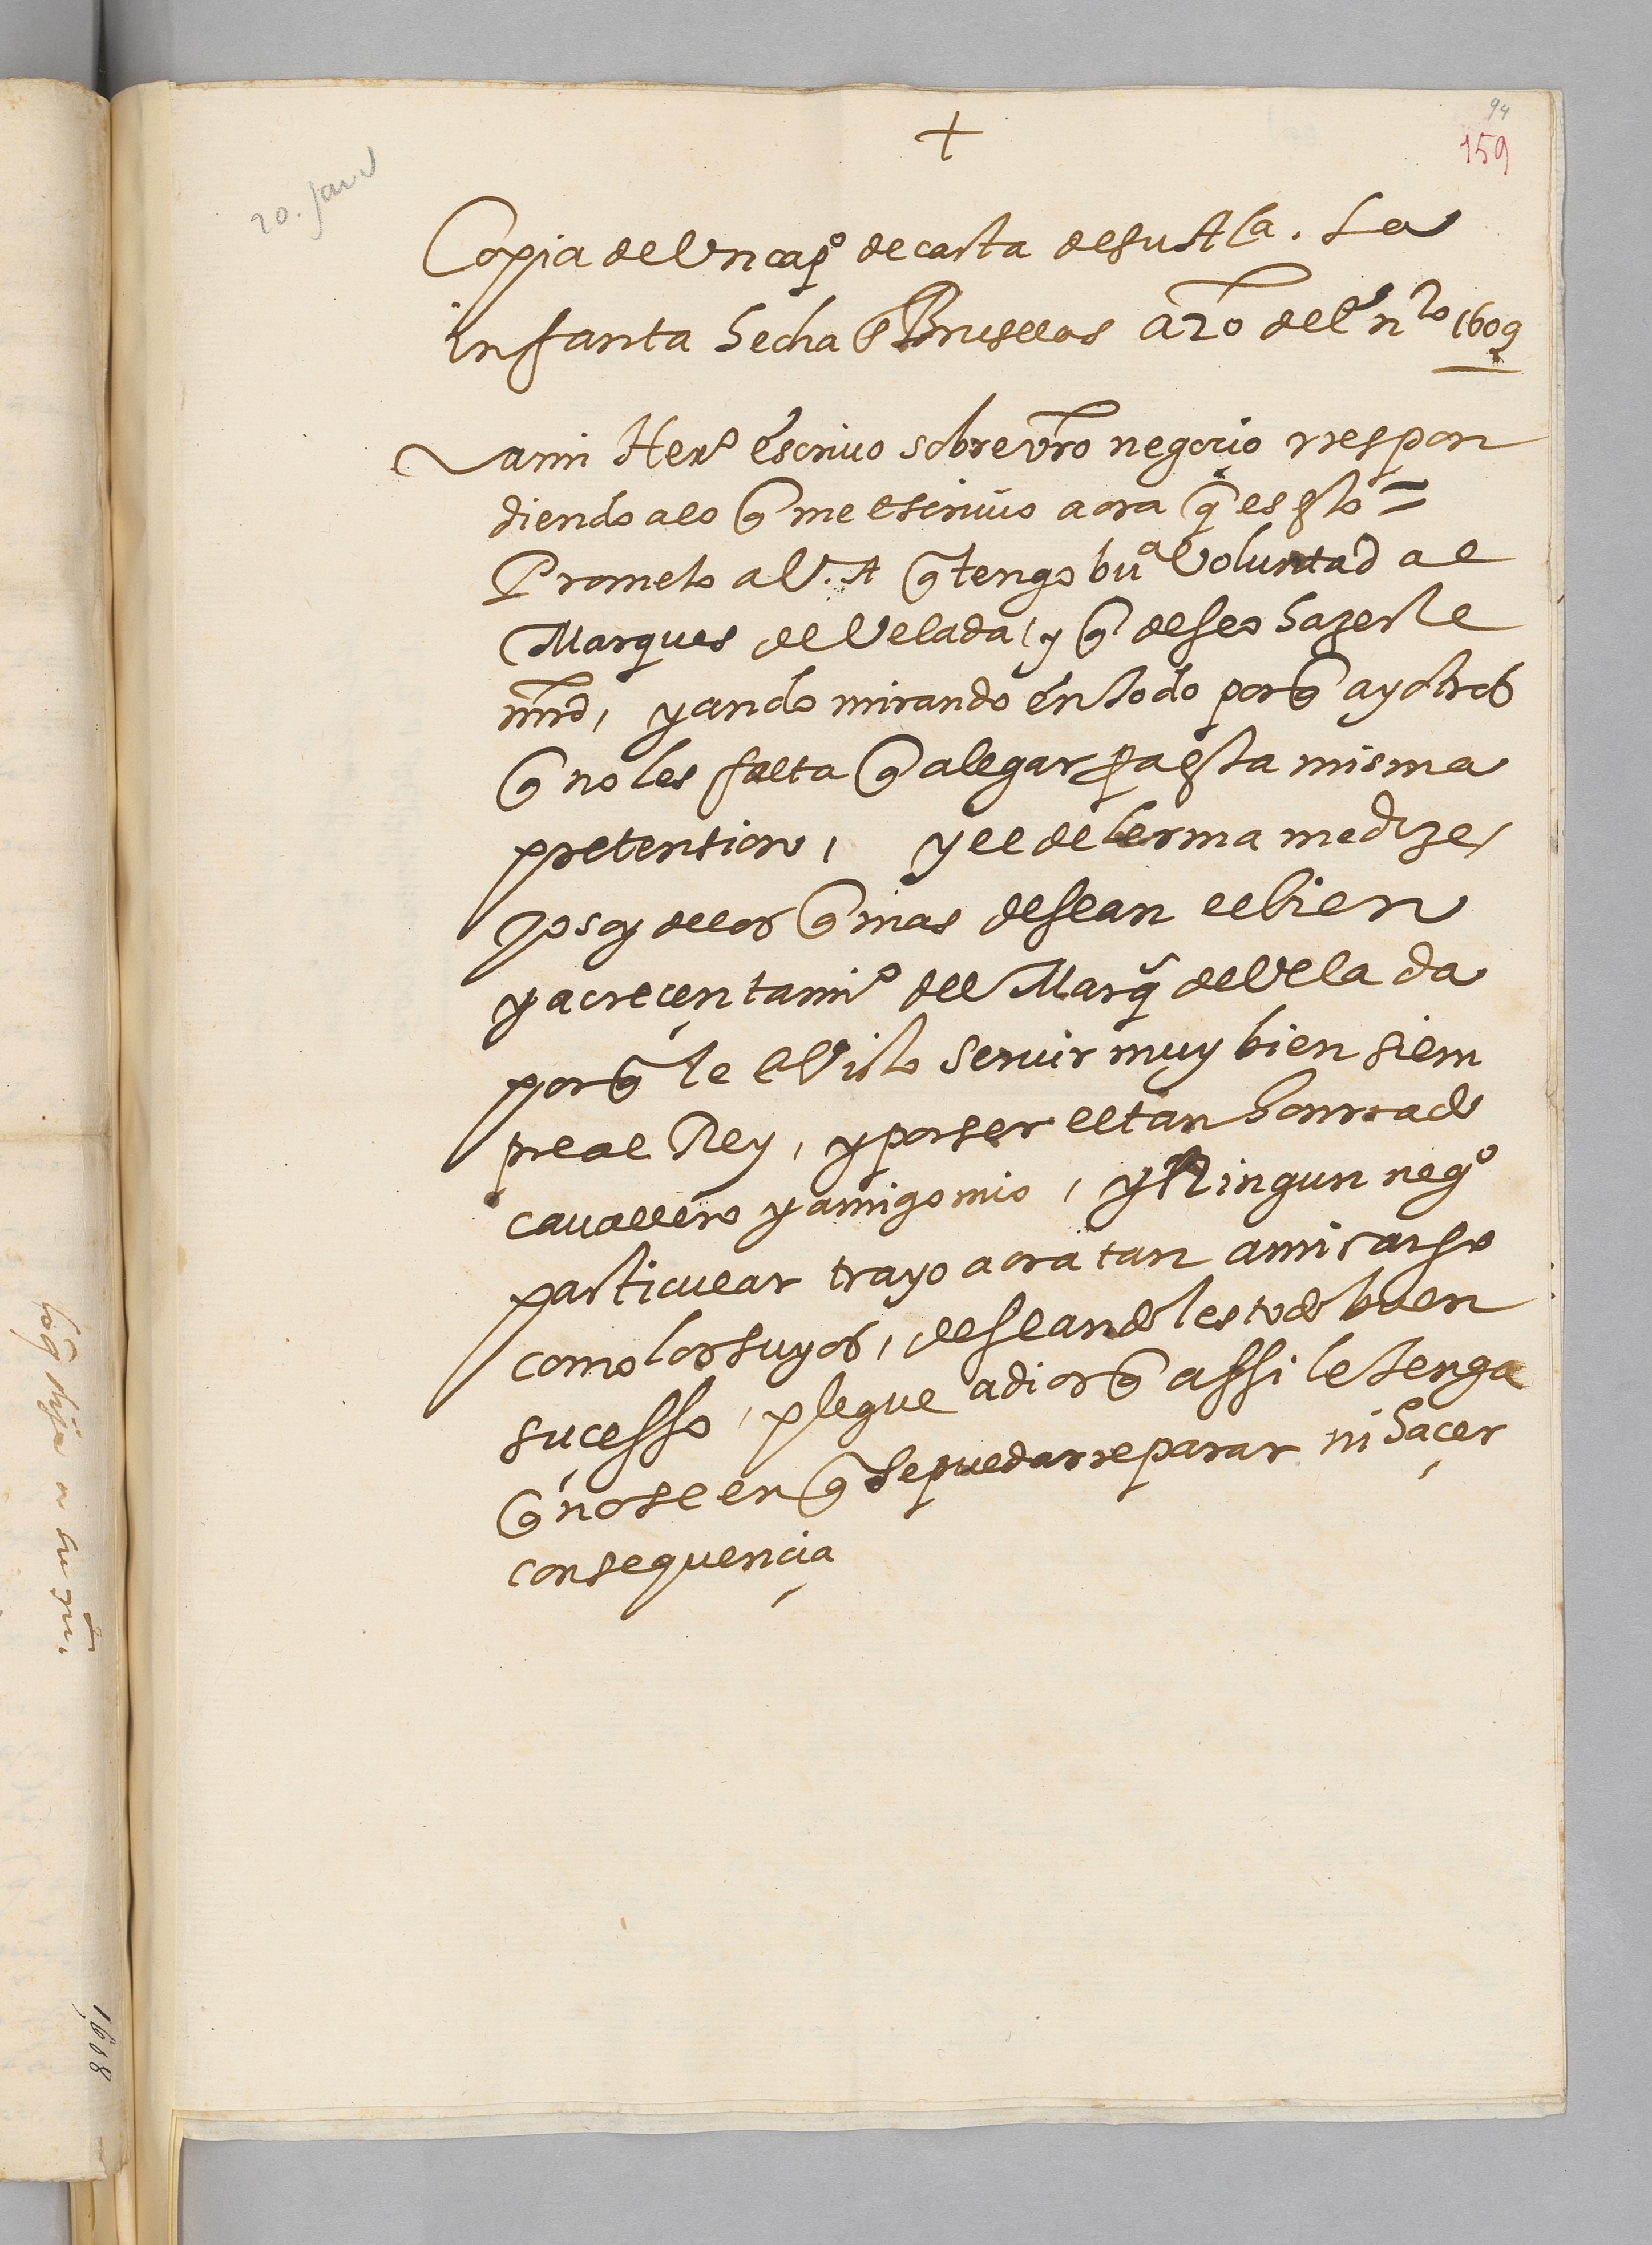 94
159
+
20. Janv
Copia de Un capº de carta de su Alª. La
infanta hecha ē Bruselas a 20 de Enº 1609
a mi Herº escrivo sobre vrō negocio rrespon
diendo a lo q̃ me escrivio aora q̃ es esto =
Prometo a V. A q̃ tengo buª Voluntad al
Marques de Velada, y q̃ deseo hazerle
mrd̃, y ando mirando en todo porq̃ ay otros
q̃ no les falta q̃ alegar pª esta misma
pretension, y el de lerma me dize,
yo soy de los q̃ mas desean el bien
y acreçentamiº del Marq̃ de Velada
porq̃ le e Visto servir muy bien siem
pre al Rey, y por ser el tan honrrado
cavallero y amigo mio, y Ningun negº
particular trayo aora tan a mi cargo
como los suyos, deseandoles todo buen
suçesso, plegue a dios q̃ assi le tenga
q̃ no se en q̃ se pueda rreparar ni haçer
consequençia
1608